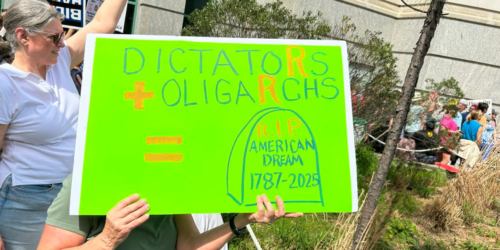 DICTATORS
+ OLIGARCHS
=
R.I.P
AMERICAN
DREAM
1787-2025